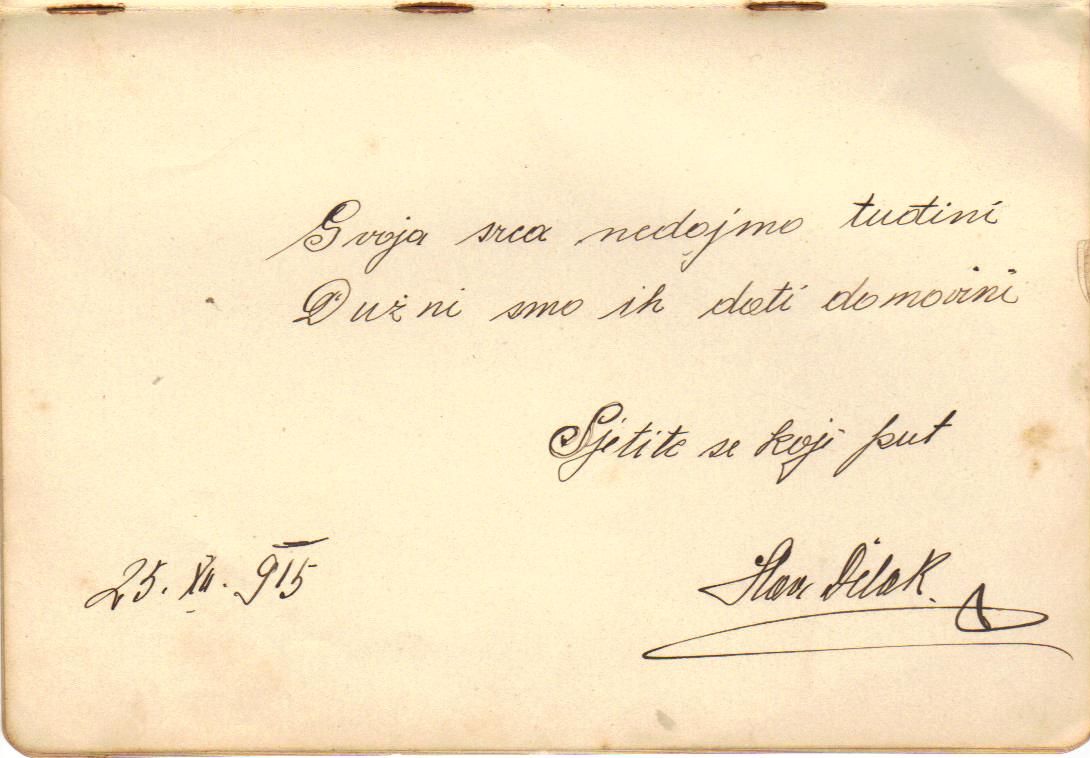 Svoja srca nedajmo tuđini
Dužni smo ih dati domovini
Sjetite se koji put
25. XII. 915
Slav Dilak.